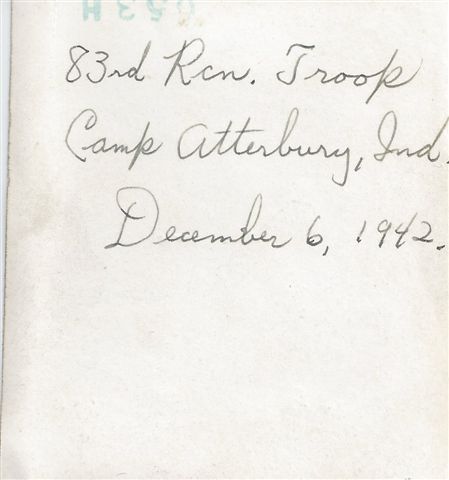 83rd Rcn. Troop
Camp Atterbury, Ind.
December 6, 1942.